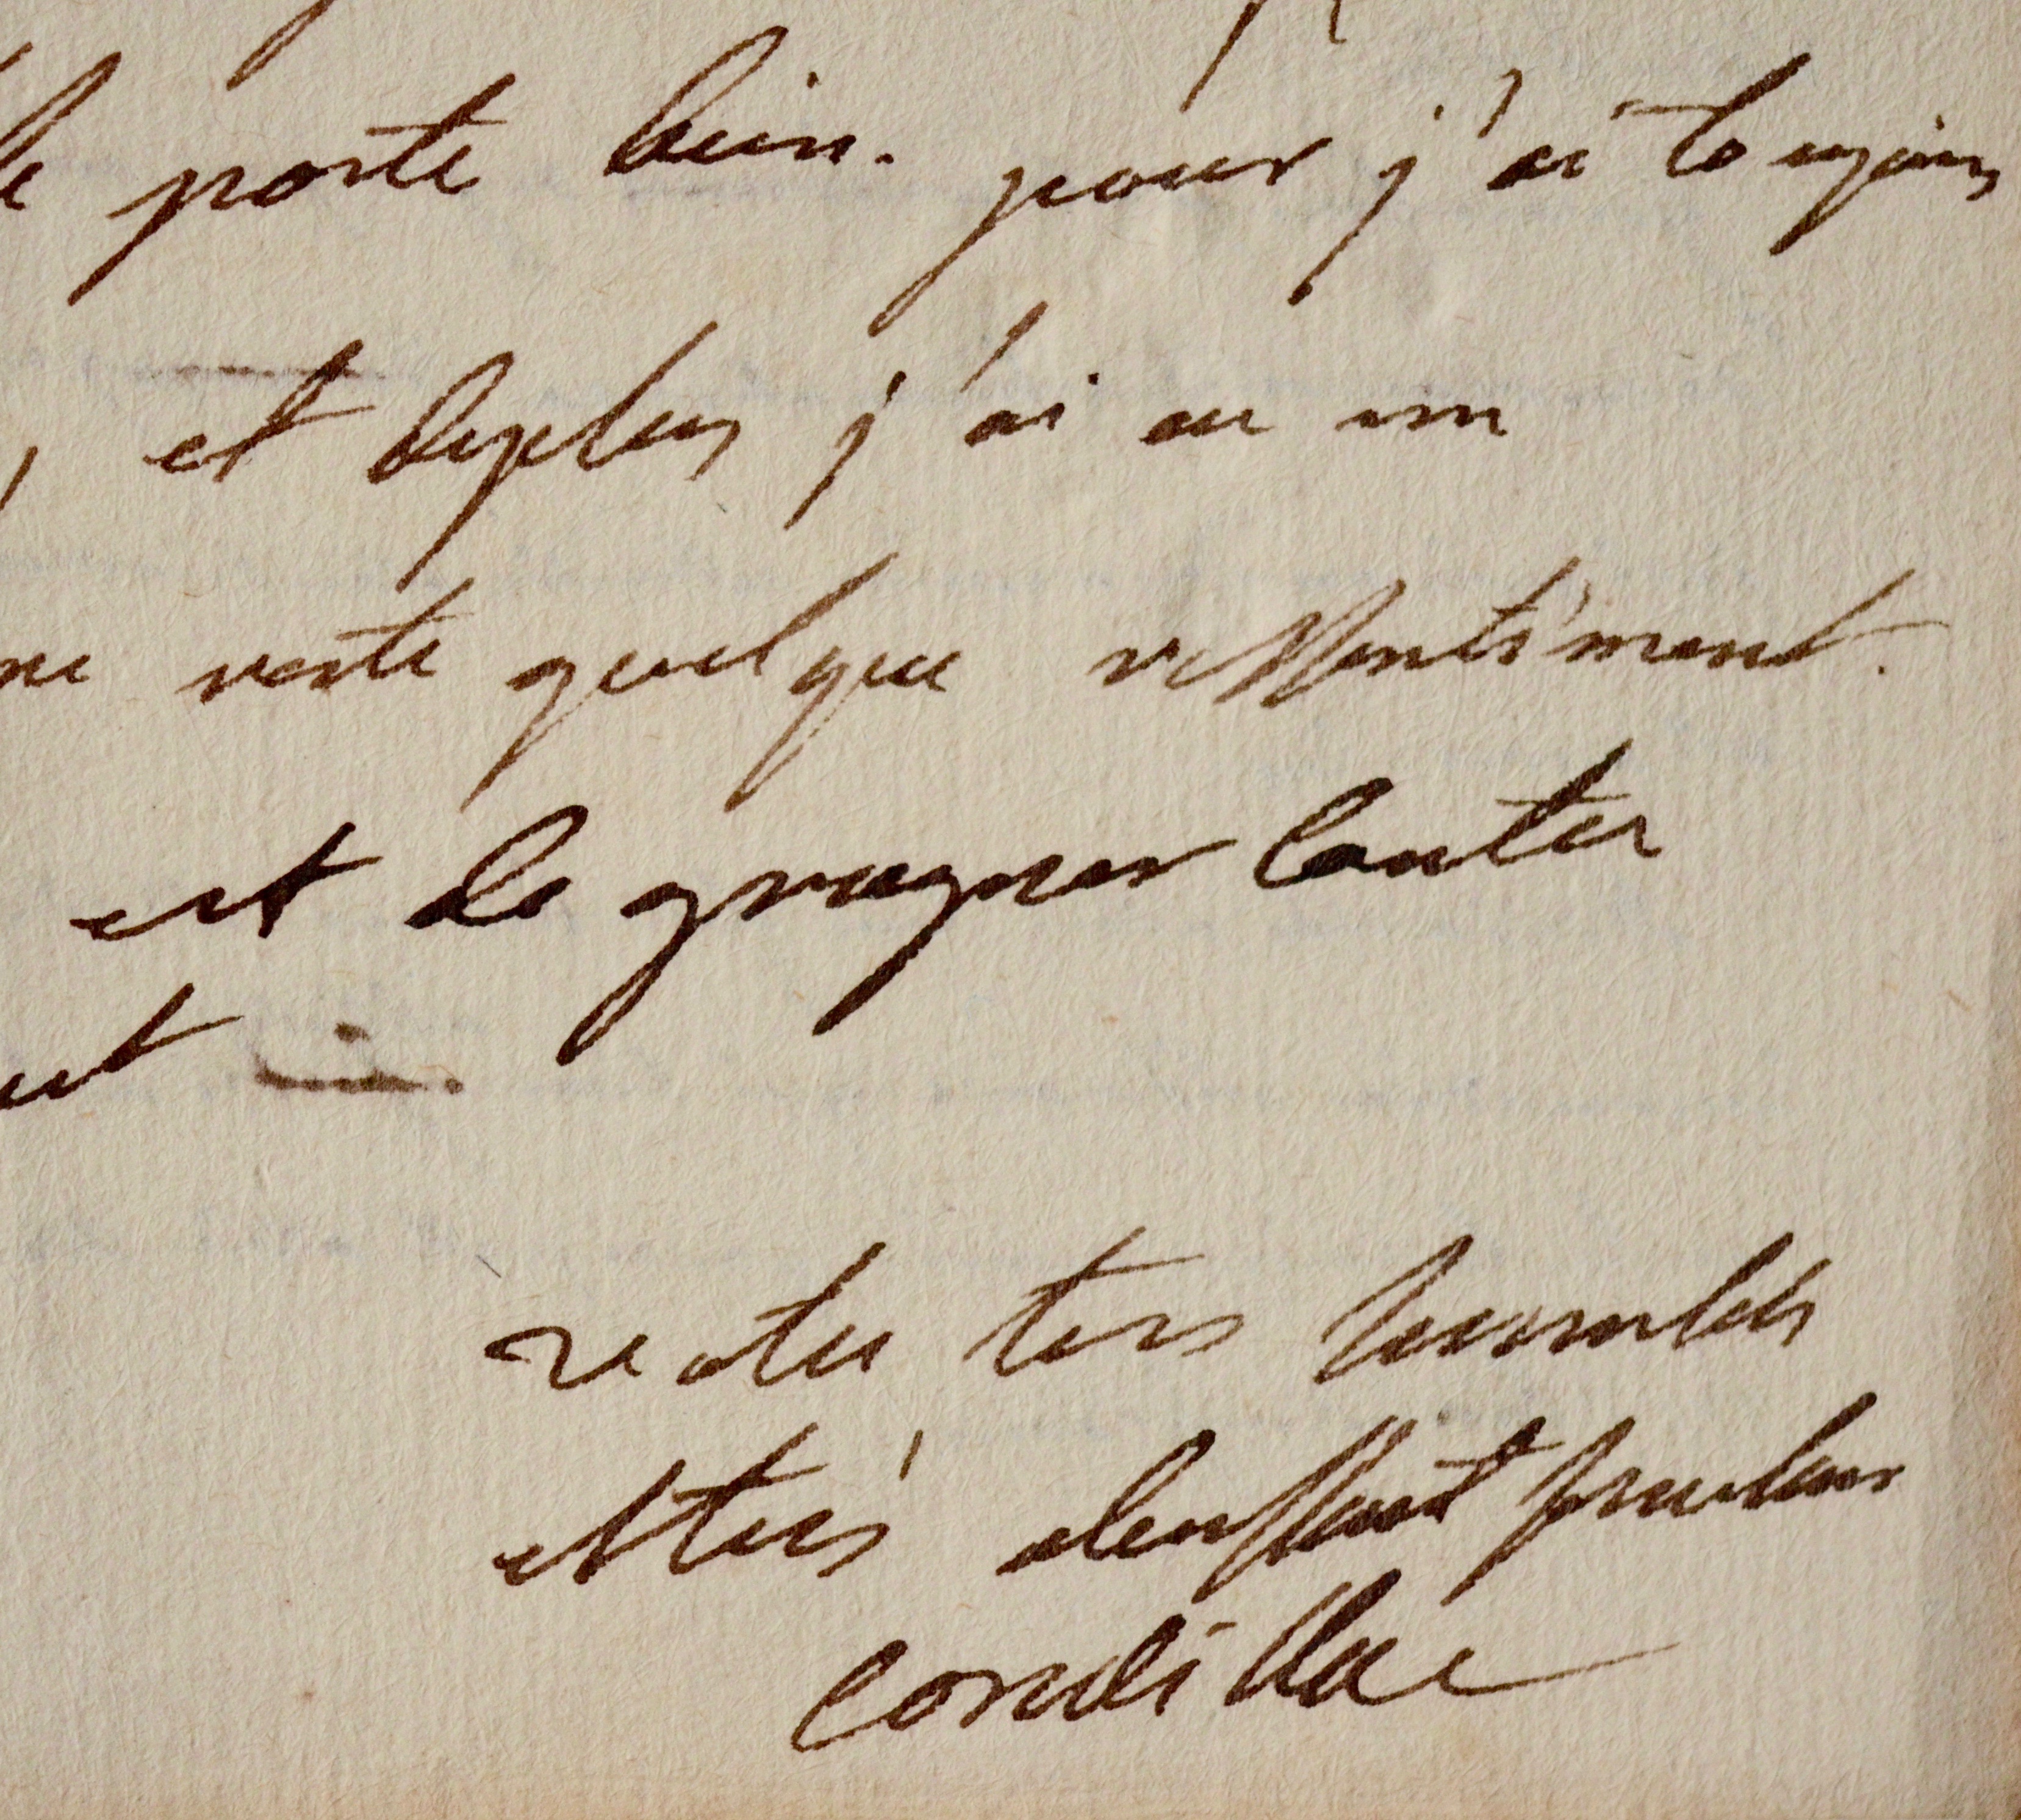 porte bien. pour j'ai toujours
et deplus j'ai eu un
me reste quelque ressentiment.
est de gagner
est
votre tres humble
et tres obeissant serviteur
condillac